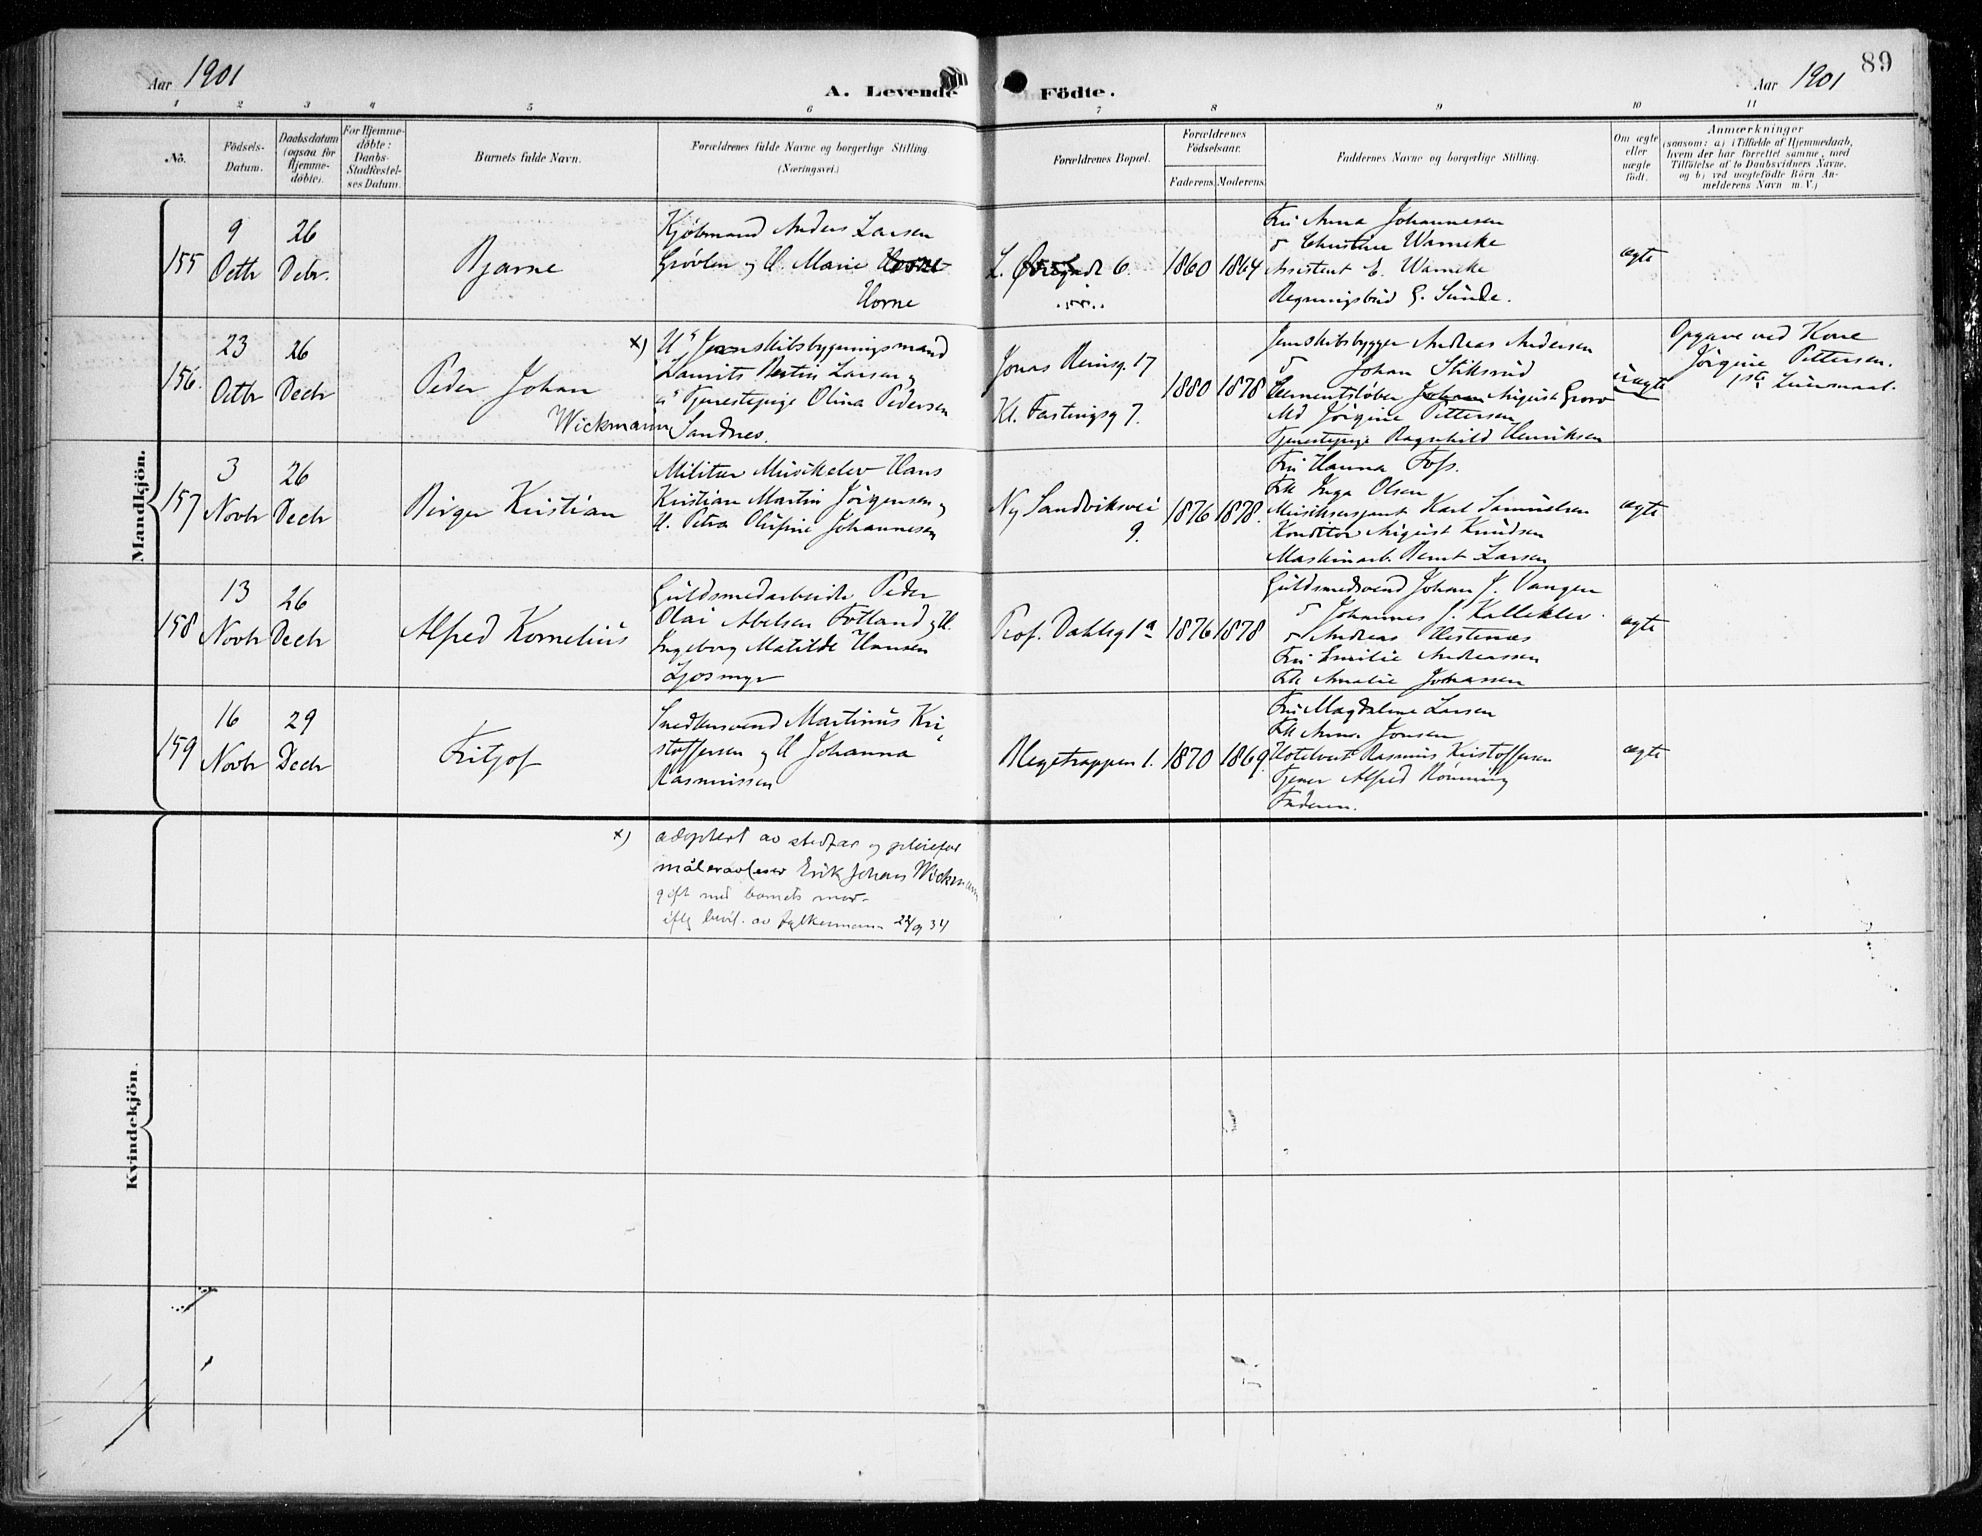 Aar 1901
A. Levende Födte.
Aar 1901
89
1 2 3 4 5 6 7 8 9 10 11
No.
Födsels-
Datum.
Daabsdatum
(ogsaa for
Hjemme-
døbte).
For Hjemme-
døbte:
Daabs-
Stadfæstel-
ses Datum.
Barnets fulde Navn.
Forældrenes fulde Navne og borgerlige Stilling.
(Næringsvei.)
Forældrenes Bopæl.
Forældrenes
Födselsaar.
Faderens. Moderens.
Faddernes Navne og borgerlige Stilling.
Om ægte
eller
uægte
födt.
Anmærkninger
(saasom: a) i Tilfælde af Hjemmedaab,
hvem der har forrettet samme, med
Tilföielse af to Daabsvidners Navne,
og b) ved uægtefödte Börn An-
melderens Navn m. V.)
Mandkjön.
155
9
Octbr
26
Debr.
Bjarne
Kjøbmand Anders Larsen
Grövlen og H. Marie
Horne
6.
1860
1864
Fru Anna Johannesen
" Christine Warneke
Assistent E. Warneke
Regningsbud G. Sunde.
ægte
156.
23
Octbr
26
Decbr
Peder Johan
Wickmann
x)
U" Jernskibsbygningsmand
Laurits Martin Larsen og
u" Tjenestepige Olina Pedersen
Sandnes.
Jonas Reinsg. 17
Kl. Fastingsg 7.
1880
1878
Jernskibsbygger Andreas Andersen
" Johan Stiksrud
August Grov
Md Jörgine Pettersen
Tjenestepige Ragnhild Henriksen
uægte
Opgave ved Kone
Jörgine Pettersen.
1ste Leiermaal.
157
3
Novbr
26
Decbr
Birger Kristian
Militær Musikelev Hans
Kristian Martin Jörgensen og
H. Petra Olufine Johannesen
Ny Sandviksvei
9.
1876
1878.
Fru Hanna Foss.
Frk Inga Olsen
Musiksergeant Karl Samuelsen
Konditor August Knudsen
Maskinarb. Bernt Larsen
ægte
158
13
Novbr
26
Decbr
Alfred Kornelius
Guldsmedarbeider Peder
Olai Abelsen Fotland og H.
Ingeborg Matilde Hansen
Ljosmyr
Prof. Dahlsg 1a
1876
1878
Guldsmedsvend Johan J. Vangen
" Johannes J. Kalleklev.
" Andreas Hestenæs
Fru Emilie Andreassen
Frk Amalie Johassen
ægte
159
16
Novbr
29
Decbr
Fritjof
Snedkersvend Martinus Kri-
stoffersen og H Johanna
Rasmussen
Blegetrappen 1.
1870
1869.
Fru Magdalene Larsen
Frk Anna Jonsen
Hotelvert Rasmus Kristoffersen
Tjener Alfred Rönning
Faderen.
ægte
Kvindekjön.
x) adoptert av stedfar og pleiefar
måleravleser Erik Johan Wickmann
gift med barnets mor
iflg bevil. av fylkesmann 22/9 34